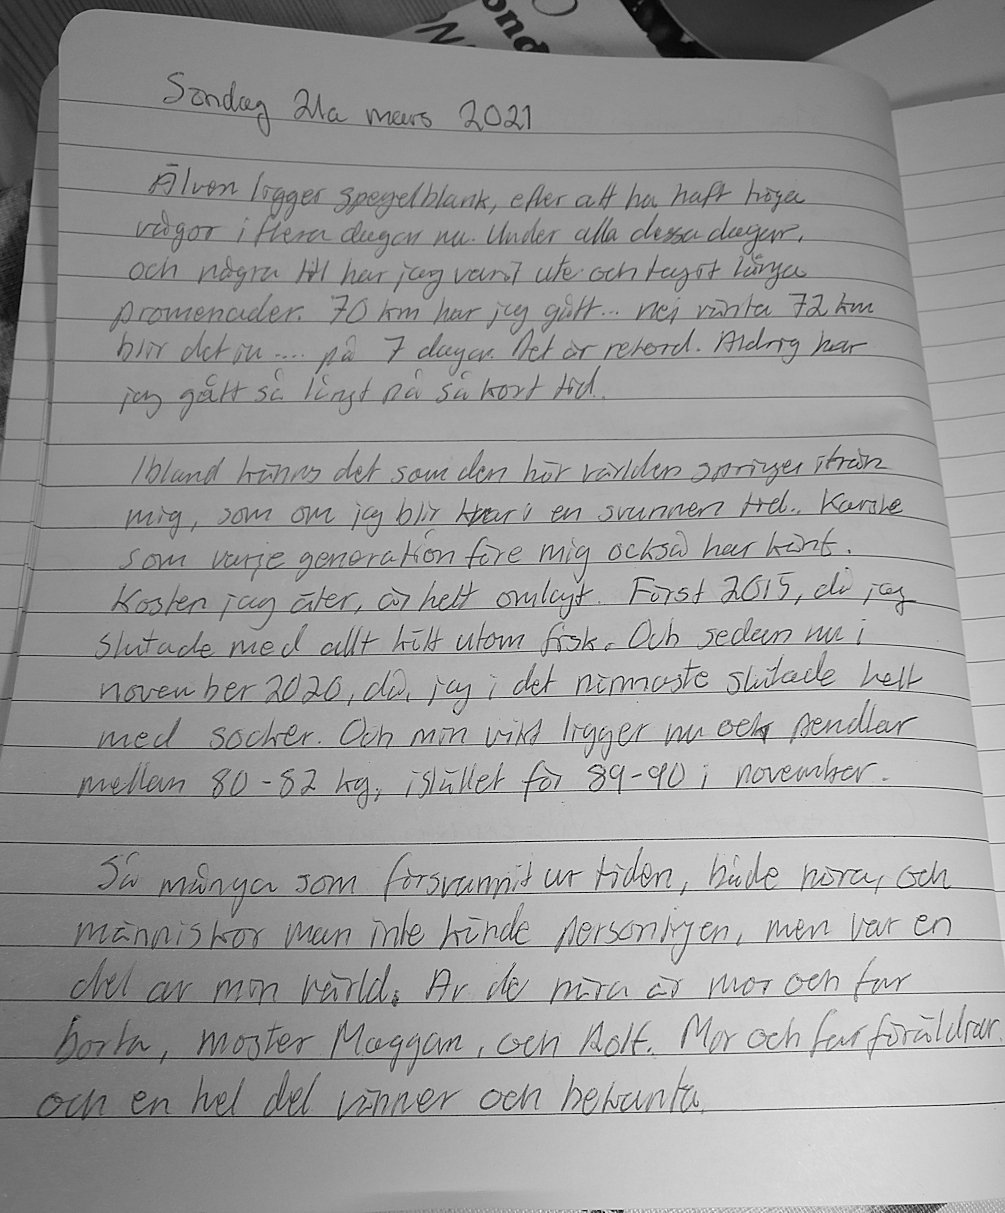 ond
N
Söndag 21a mars 2021
Älven ligger spegelblank, efter att ha haft höga
vågor i flera dagar nu. Under alla dessa dagar,
och några till har jag varit ute och tagit långa
promenader. 70 km har jag gått... nej vänta 72 km
blir det ju .... på 7 dagar. Det är rekord. Aldrig har
jag gått så långt på så kort tid.
Ibland känns det som den här världen springer ifrån
mig, som om jag blir kvar i en svunnen tid.. Kanske
som varje generation före mig också har känt.
Kosten jag äter, är helt omlagt. Först 2015, då jag
slutade med allt kött utom fisk. Och sedan nu i
november 2020, då jag i det närmaste slutade helt
med socker. Och min vikt ligger nu och pendlar
mellan 80-82 kg, istället för 89-90 i november.
Så många som försvunnit ur tiden, både nära, och
människor man inte kände personligen, men var en
del av min värld. Av de nära är mor och far
borta, moster Maggan, och Rolf. Mor och farföräldrar.
och en hel del vänner och bekanta.